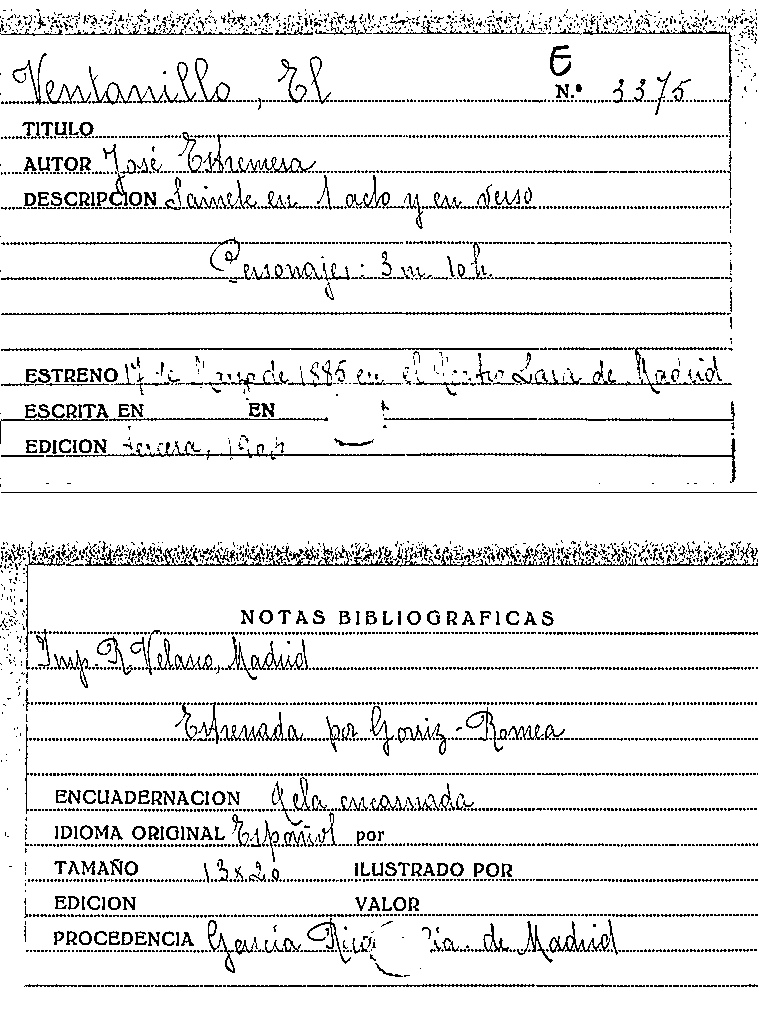 Ventanillo, El
E
N.º 3375
TITULO
AUTOR José Estremera
DESCRIPCION Sainete en 1 acto y en verso
Personajes: 3 m. 10 h.
ESTRENO 17 de Marzo de 1885 en el Teatro Lara de Madrid
ESCRITA EN EN
EDICION tercera,
NOTAS BIBLIOGRAFICAS
Imp. R. Velasco, Madrid
Estrenada por Gorriz-Romea
ENCUADERNACION Tela encarnada
IDIOMA ORIGINAL Español por
TAMAÑO 13x20 ILUSTRADO POR
EDICION VALOR
PROCEDENCIA García de Madrid